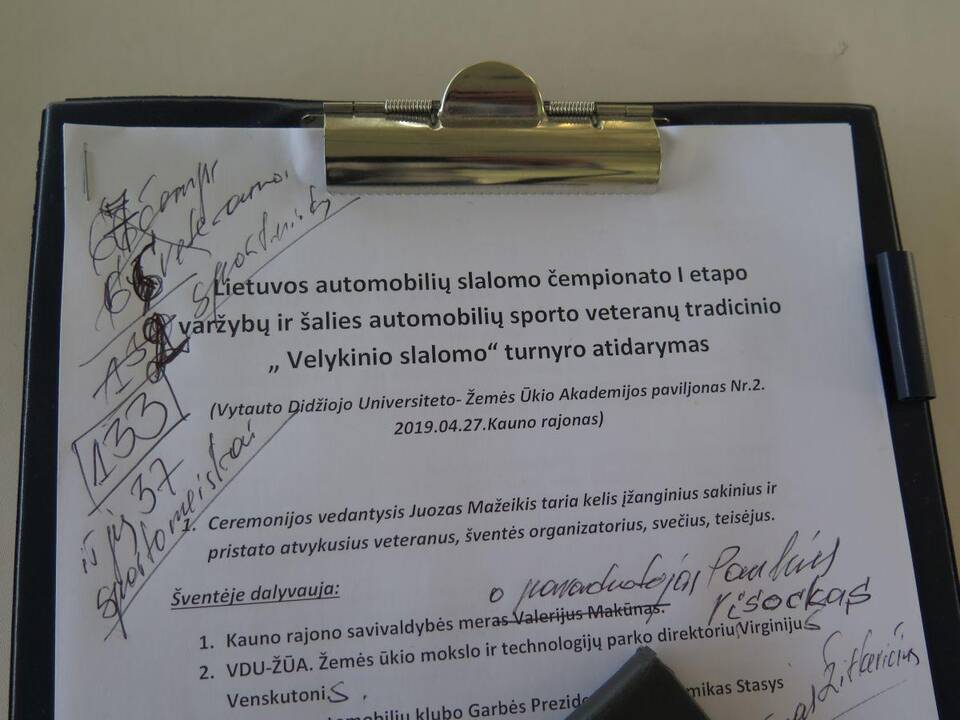 čempr
veteranai
sportininkų
132
133
iš jų 37
sportomeiskai
Lietuvos automobilių slalomo čempionato I etapo
varžybų ir šalies automobilių sporto veteranų tradicinio
„ Velykinio slalomo“ turnyro atidarymas
(Vytauto Didžiojo Universiteto- Žemės Ūkio Akademijos paviljonas Nr.2.
2019.04.27.Kauno rajonas)
1. Ceremonijos vedantysis Juozas Mažeikis taria kelis įžanginius sakinius ir
pristato atvykusius veteranus, šventės organizatorius, svečius, teisėjus.
Šventėje dalyvauja:
o pavaduotojas
1. Kauno rajono savivaldybės meras Valerijus Makūnas.
2. VDU-ŽŪA. Žemės ūkio mokslo ir technologijų parko direktorių Virginijus
Venskutonis.
Garbės Prezide
Stasys